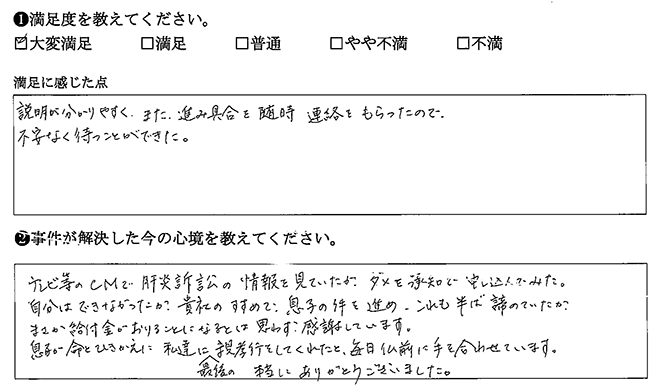 ❶満足度を教えてください。
☑大変満足 □満足 □普通 □やや不満 □不満
満足に感じた点
説明が分かりやすく、また、進み具合を随時 連絡をもらったので、
不安なく待つことができた。
❷事件が解決した今の心境を教えてください。
テレビ等のCMで肝炎訴訟の情報を見ていたが、ダメを承知で申し込んでみた。
自分はできなかったが、貴社のすすめで、息子の件を進め、これも半ば諦めていたが、
まさか給付金がおりることになるとは思わず、感謝しています。
息子が命とひきかえに私達に最後の親孝行をしてくれたと、毎日仏前に手を合わせています。
本当にありがとうございました。